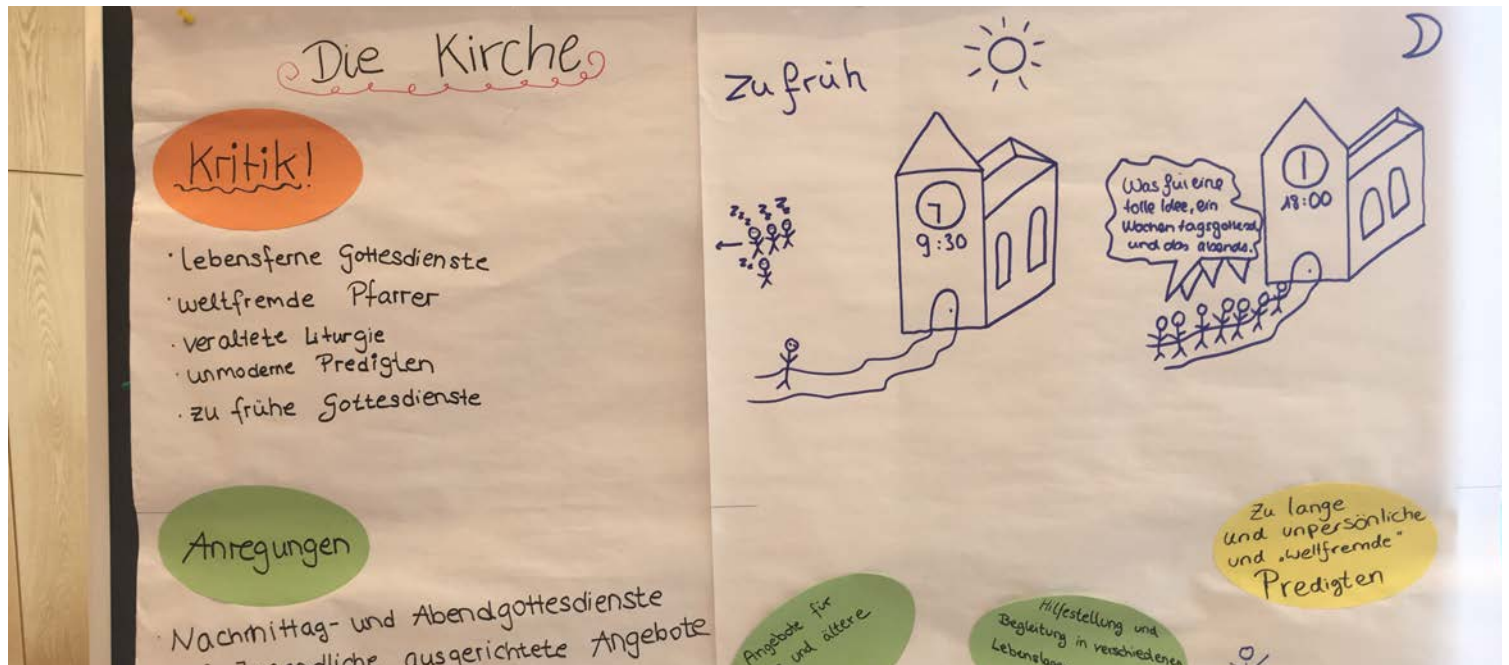 Die Kirche
Kritik!
· lebensferne Gottesdienste
· weltfremde Pfarrer
· veraltete Liturgie
· unmoderne Predigten
· zu frühe Gottesdienste
Anregungen
Nachmittag- und Abendgottesdienste
ausgerichtete Angebote
zu früh
zzz zz zz
zz
9:30
Was für eine
tolle Idee, ein
Wochentagsgottesd
und das abends.
18:00
Zu lange
und unpersönliche
und „weltfremde“
Predigten
Angebote für
und ältere
Hilfestellung und
Begleitung in verschiedenen